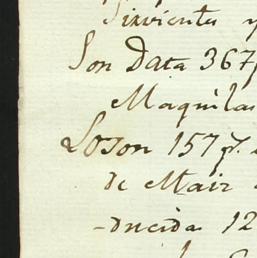 Sirvienta y
Son Data 367
Maquilas
Loson 157 p.
de Maiz
-ducida 12